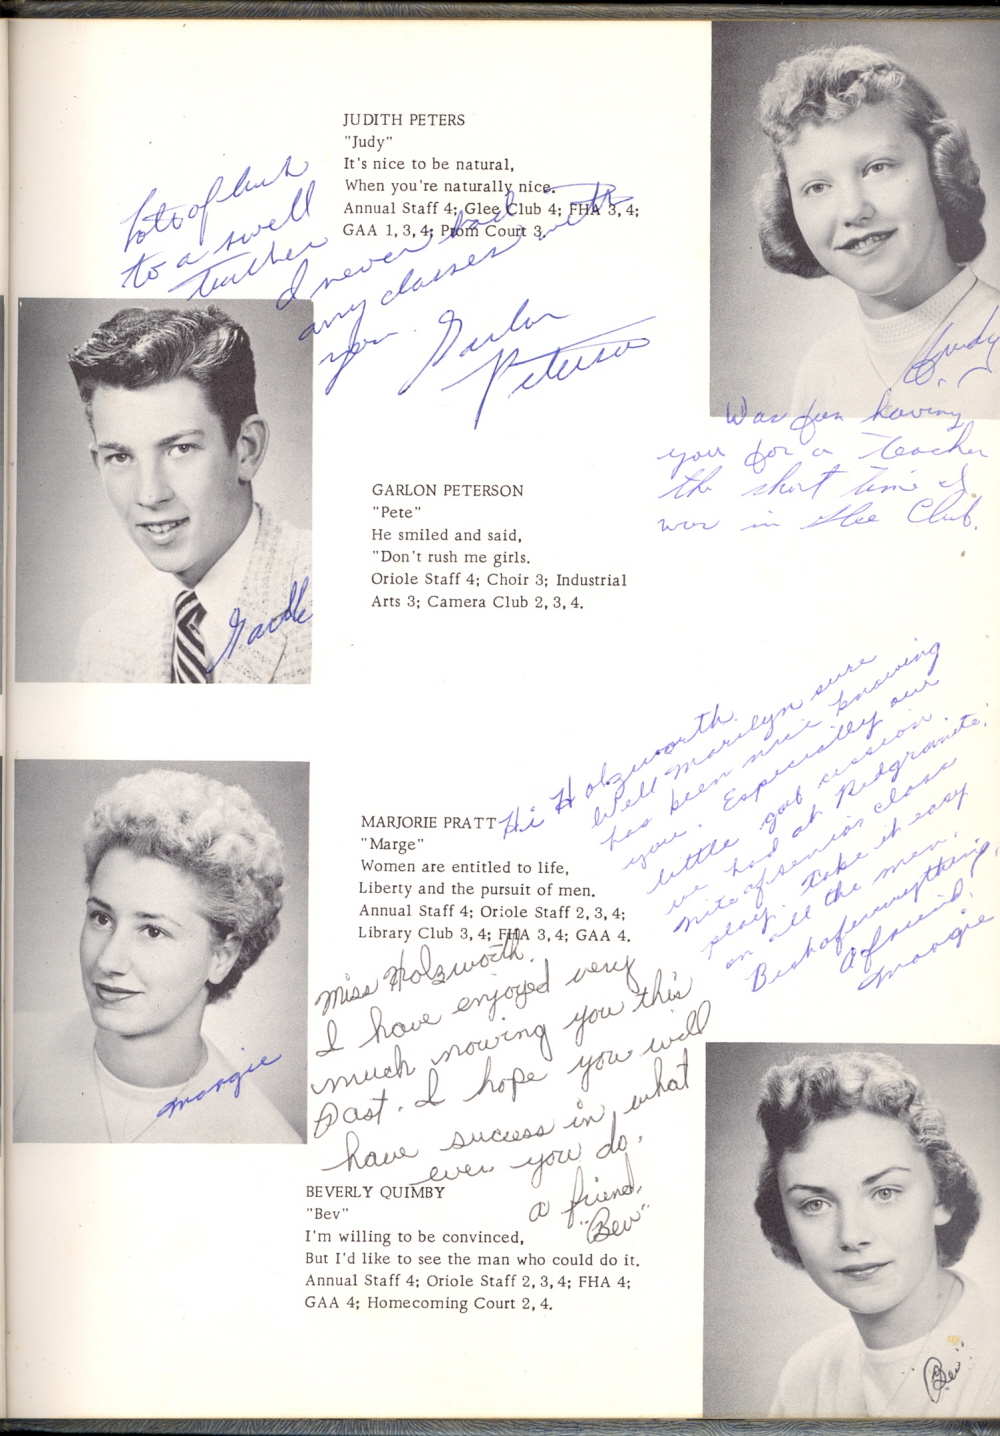 JUDITH PETERS
"Judy"
It's nice to be natural,
When you're naturally nice.
Annual Staff 4; Glee Club 4; FHA 3, 4;
GAA 1, 3, 4; Prom Court 3.
Lots of luck
to a swell
teacher
I never had
any classes with
you. Garlon
Peterson
Judy
Was fun having
you for a teacher
the short time I
was in Glee Club.
GARLON PETERSON
"Pete"
He smiled and said,
"Don't rush me girls.
Oriole Staff 4; Choir 3; Industrial
Arts 3; Camera Club 2, 3, 4.
Hi Holzworth.
Well Marilyn sure
has been nice knowing
you. Especially our
little gab session
we had at Redgranite.
Nite of senior class
play. Take it easy
on all the men.
A friend,
Margie
MARJORIE PRATT
"Marge"
Women are entitled to life,
Liberty and the pursuit of men.
Annual Staff 4; Oriole Staff 2, 3, 4;
Library Club 3, 4; FHA 3, 4; GAA 4.
Margie
Miss Holzworth.
I have enjoyed very
much nowing you this
past. I hope you will
have success in what
ever you do.
a friend,
"Bev"
BEVERLY QUIMBY
"Bev"
I'm willing to be convinced,
But I'd like to see the man who could do it.
Annual Staff 4; Oriole Staff 2, 3, 4; FHA 4;
GAA 4; Homecoming Court 2, 4.
"Bev"